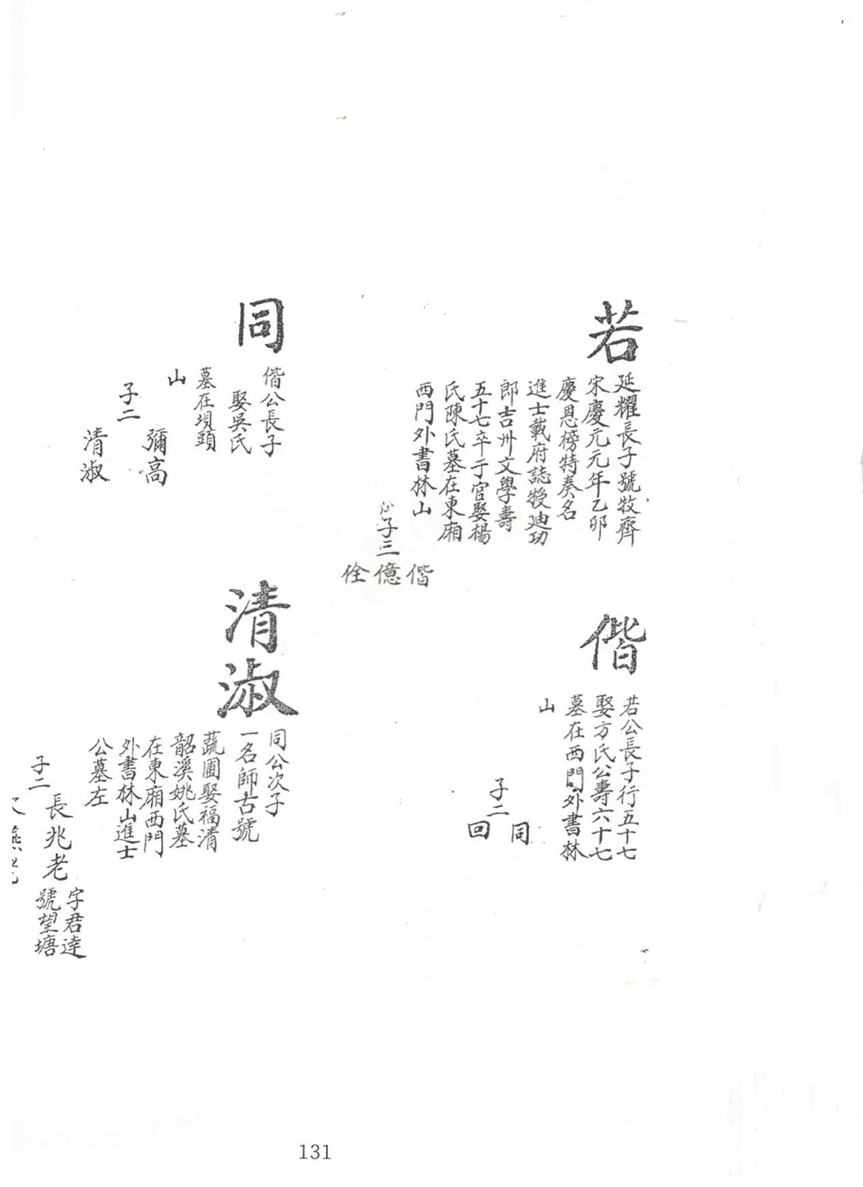 若
延耀長子號牧齊
宋慶元元年乙卯
慶恩榜特奏名
進士載府誌授迪功
郎吉州文學壽
五十七卒于官娶楊
氏陳氏墓在東廂
西門外書林山
子三
偕
億
佺
偕
若公長子行五十七
娶方氏公壽六十七
墓在西門外書林
山
子二
同
回
同
偕公長子
娶吳氏
墓在垻頭
山
子二
彌高
清淑
清淑
同公次子
一名師古號
蔬圃娶福清
韶溪姚氏墓
在東廂西門
外書林山進士
公墓左
子二
長兆老
字君達
號望塘
131